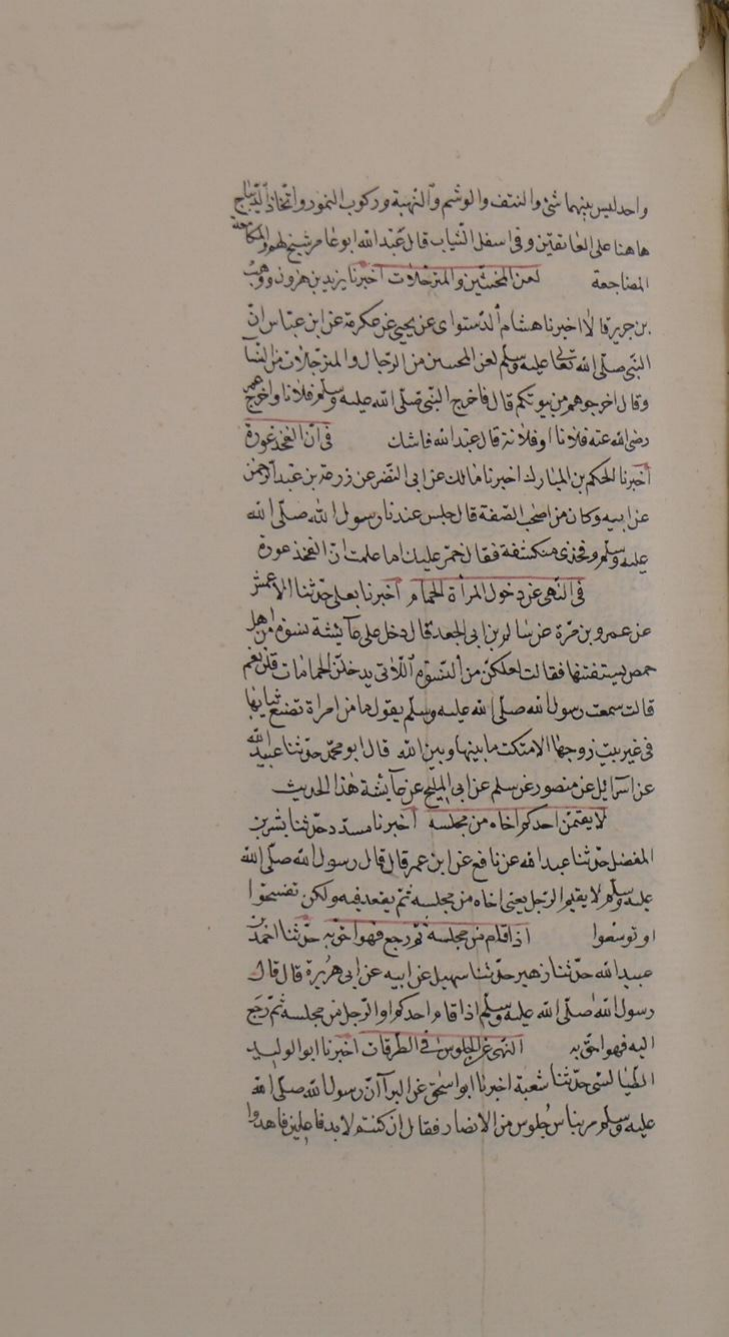 واحد ليس بينهما شئ والنتف والوشم والنهبة وركوب النمور واتخاذ الديباج
هاهنا على العاتقين وفى اسفل الثياب قال عبد الله ابو عامر شيخ لهم والمكامعة
المضاجعة لعن المخنثين والمترجلات أخبرنا يزيد بن هرون ووهب
بن جرير قالا اخبرنا هشام الدستواى عن يحيى عن عكرمة عن ابن عباس انّ
النبى صلّى الله تعالى عليه وسلم لعن المخنسين من الرجال والمترجلات من النسا
وقال اخرجوهم من بيوتكم قال فاخرج النبى صلّى الله عليه وسلم فلانا واخرج عمر
رضى الله عنه فلانا او فلانة قال عبد الله فاشك فى انّ الفخذ عورة
أخبرنا الحكم بن المبارك اخبرنا مالك عن ابى النضر عن زرعة بن عبد الرحمن
عن ابيه وكان من اصحاب الصفة قال جلس عندنا رسول الله صلّى الله
عليه وسلم وفخذى منكشفة فقال خمر عليك اما علمت انّ الفخذ عورة
فى النهى عن دخول المرأة الحمام أخبرنا يعلى حدّثنا الاعمش
عن عمرو بن مرة عن سالم بن ابى الجعد قال دخل على عآيشة نسوة من اهل
حمص يستفتنها فقالت لعلكنّ من النسوة اللآتى يدخلن الحمامات قلن نعم
قالت سمعت رسول الله صلى الله عليه وسلم يقول ما من امراة تضع ثيابها
فى غير بيت زوجها الا هتكت ما بينها وبين الله قال ابو محمّد حدّثنا عبيد الله
عن اسرائيل عن منصور عن سلم عن ابى المليح عن عآيشة هذا الحديث
لا يقيمنّ احدكم اخاه من مجلسه أخبرنا مسدد حدّثنا بشر بن
المفضل حدّثنا عبد الله عن نافع عن ابن عمر قال قال رسول الله صلى الله
عليه وسلم لا يقيم الرجل يعنى اخاه من مجلسه ثم يقعد فيه ولكن تفسحوا
او توسعوا اذا قام من مجلسه ثم رجع فهو احق به حدّثنا احمد بن
عبد الله حدّثنا زهير حدّثنا سهيل عن ابيه عن ابى هريرة قال قال
رسول الله صلّى الله عليه وسلم اذا قام احدكم او الرجل من مجلسه ثمّ رجع
اليه فهو احق به النهى عن الجلوس فى الطرقات أخبرنا ابو الوليد
الطيالسى حدّثنا شعبة اخبرنا ابو اسحق عن البرآ أنّ رسول الله صلى الله
عليه وسلم مر بناس جلوس من الانصار فقال ان كنتم لا بد فاعلين فاهدوا